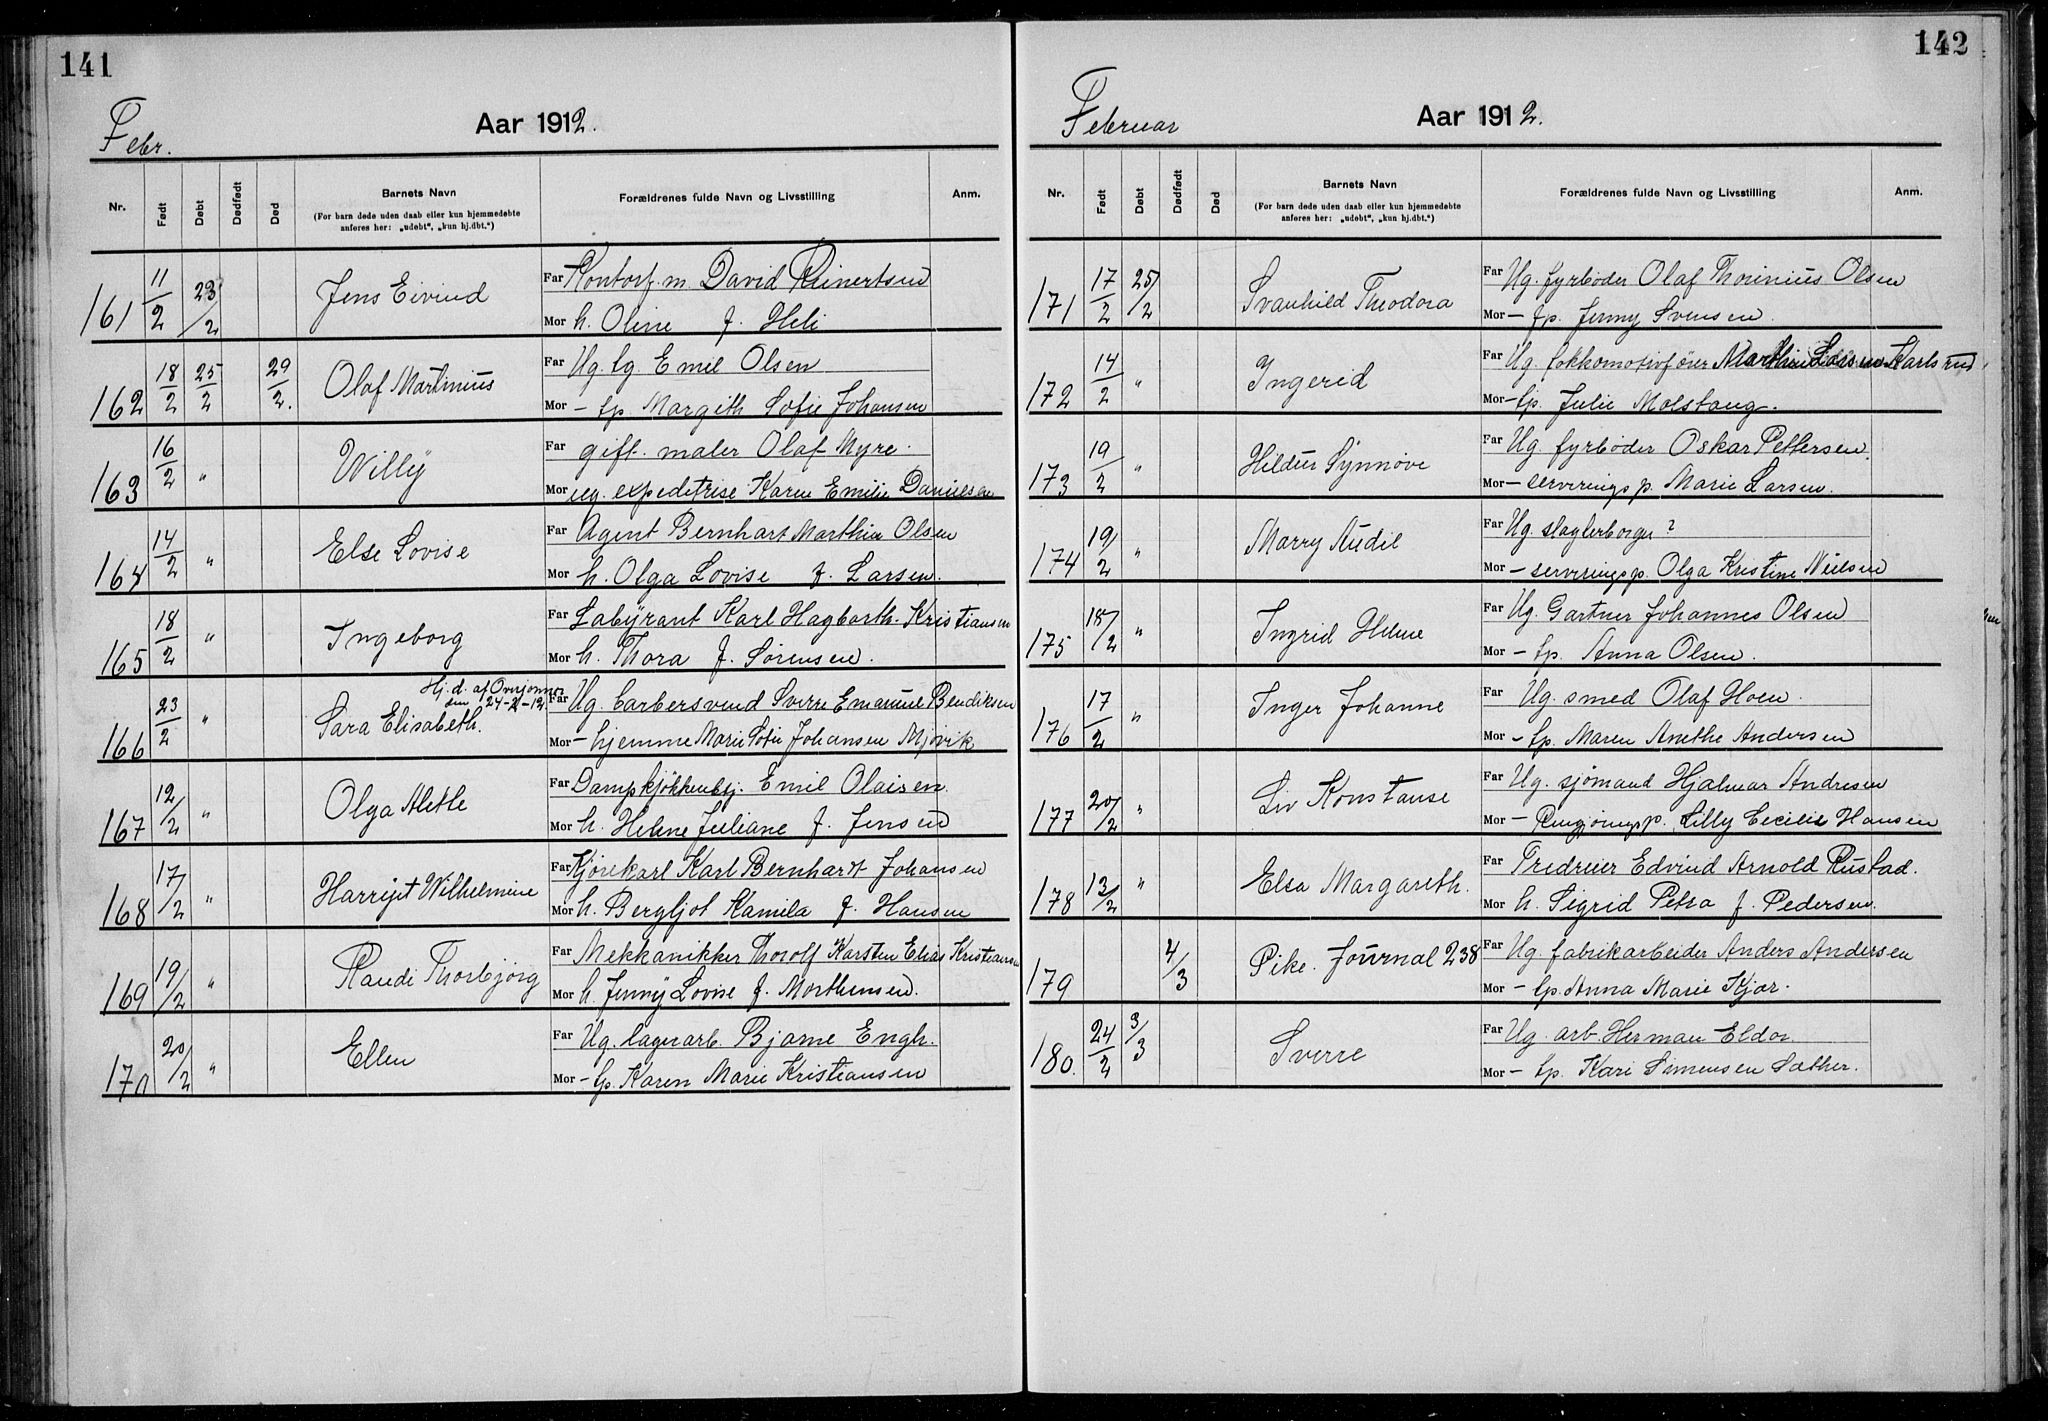 141
Febr.
Aar 1912.
Nr. Født Døbt Dødfødt Død Barnets Navn Forældrenes fulde Navn og Livsstilling Anm.
(For barn døde uden daab eller kun hjemmedøbte
anføres her: „udøbt“, „kun hj.dbt.“)
161 11/2 23/2 Jens Eivind Far Kontorf.m. David Reinertsen
Mor h. Oline f. Heli
162 18/2 25/2 29/2. Olaf Martinius Far Ug. tg Emil Olsen
Mor – tp. Margith Sofie Johansen
163 16/2 " Willy Far gift. maler Olaf Myre.
Mor ug. expeditrise Karen Emilie Danielsen
164 14/2 " Else Lovise Far Agent Bernhart Marthin Olsen
Mor h. Olga Lovise f. Larsen.
165 18/2 " Ingeborg Far Labyrant Karl Hagbarth Kristiansen
Mor h. Thora f. Sørensen.
166 23/2 " Hj. d. af Overjonner
den 24-2-12
Sara Elisabeth. Far Ug. barbersvend Sverre Emanuel Bendiksen
Mor – hjemme Marie Sofie Johansen Mjøvik
167 12/2 " Olga Alethe Far Dampkjökkenbstj. Emil Olaisen.
Mor h. Helene Juliane f. Jensen
168 17/2 " Harrijet Wilhelmine Far Kjørekarl Karl Bernhardt Johansen
Mor h. Bergljot Kamila f. Hansen
169 19/2 " Randi Thorbjørg Far Mekkanikker Thorolf Karsten Elias Kristiansen
Mor h. Jenny Lovise f. Morthensen.
170 20/2 " Ellen Far Ug. lagerarb. Bjarne Engh.
Mor – tp. Karen Marie Kristiansen
142
Februar
Aar 1912.
Nr. Født Døbt Dødfødt Død Barnets Navn Forældrenes fulde Navn og Livsstilling Anm.
(For barn døde uden daab eller kun hjemmedøbte
anføres her: „udøbt“, „kun hj.dbt.“)
171 17/2 25/2 Svanhild Theodora Far Ug. fyrbøder Olaf Thorinius Olsen
Mor – fp. Jenny Svensen.
172 14/2 " Ingerid Far Ug. lokkomotivfører Karlsrud
Mor – tp. Julie Molstang.
173 19/2 " Hildur Synnøve Far Ug. fyrbøder Oskar Pettersen.
Mor – serverings p. Marie Larsen.
174 19/2 " Marry Audil Far Ug. slagterborger ?
Mor – serveringsp. Olga Kristine Nielsen
175 18/2 " Ingrid Helene Far Ug. Gartner Johannes Olsen
Mor – tp. Anna Olsen.
176 17/2 " Inger Johanne Far Ug. smed Olaf Hoen.
Mor – tp. Maren Anethe Andersen
177 20/2 " Liv Konstanse Far Ug. sjømand Hjalmar Andresen
Mor – Rengjøringsp. Lilly Cecilie Hansen
178 13/2 " Elsa Margareth. Far Tredreier Edvind Arnold Rustad.
Mor h. Sigrid Petra f. Pedersen.
179 4/3 Pike. Journal 238 Far Ug. fabrikarbeider Anders Andersen
Mor – tp. Anna Marie Kjær.
180. 24/2 3/3 Sverre Far Ug. arb. Herman Eldor.
Mor – tp. Kari Simensen Sæther.